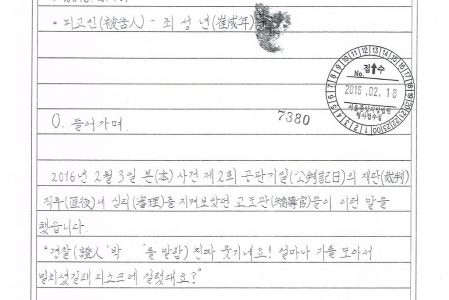 · 피고인(被告人) - 최성년(崔成年)
접수
No.
2016.02.18
서울중앙지방법원
형사접수실
7380
0. 들어가며.
2016년 2월 3일 본(本) 사건 제2회 공판기일(公判記日)의 재판(裁判)
직후(直後)에 심리(審理)를 지켜보았던 교도관(矯導官)들이 이런 말을
했습니다.
"경찰(證人 '박 '를 말함) 진짜 웃기네요! 얼마나 기를 모아서
밀치셨길래 디스크에 걸렸대요?"